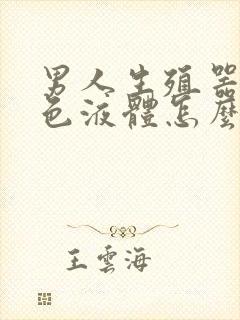 男人生殖器
色液體怎麼
王雲海